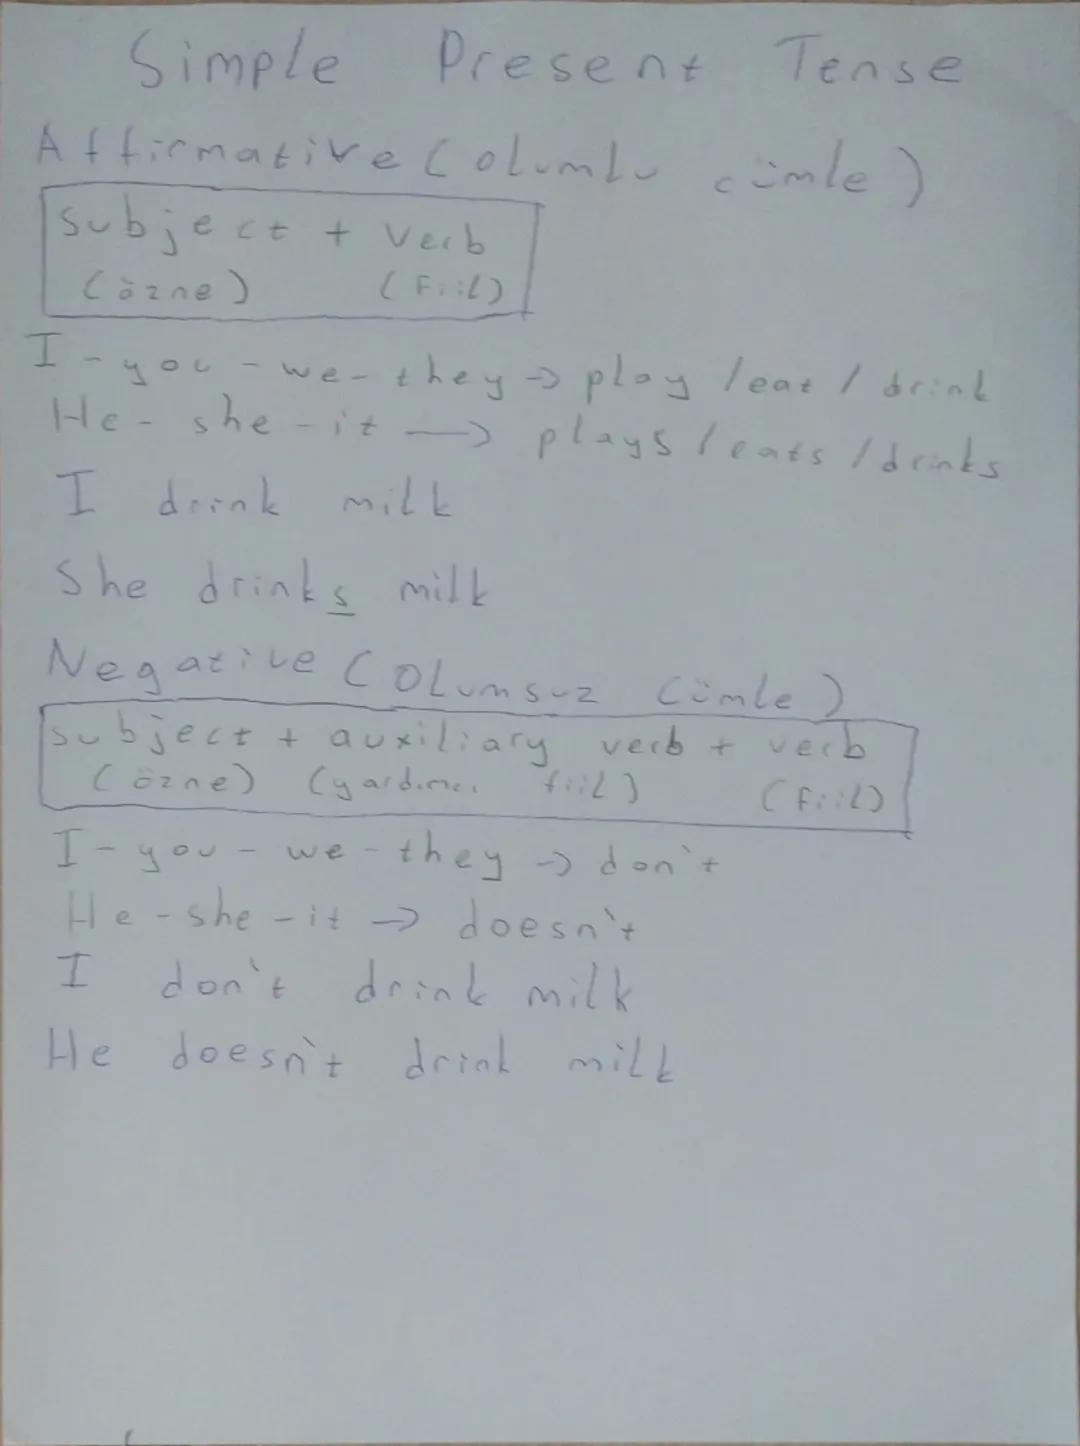 Simple Present Tense
Affirmative (Olumlu cümle)
subject + verb
(özne) (Fiil)
I - you - we - they → play / eat / drink
He - she - it → plays / eats / drinks
I drink milk
She drinks milk
Negative (Olumsuz cümle)
subject + auxiliary verb + verb
(özne) (yardımcı fiil) (Fiil)
I - you - we - they → don't
He - she - it → doesn't
I don't drink milk
He doesn't drink milk